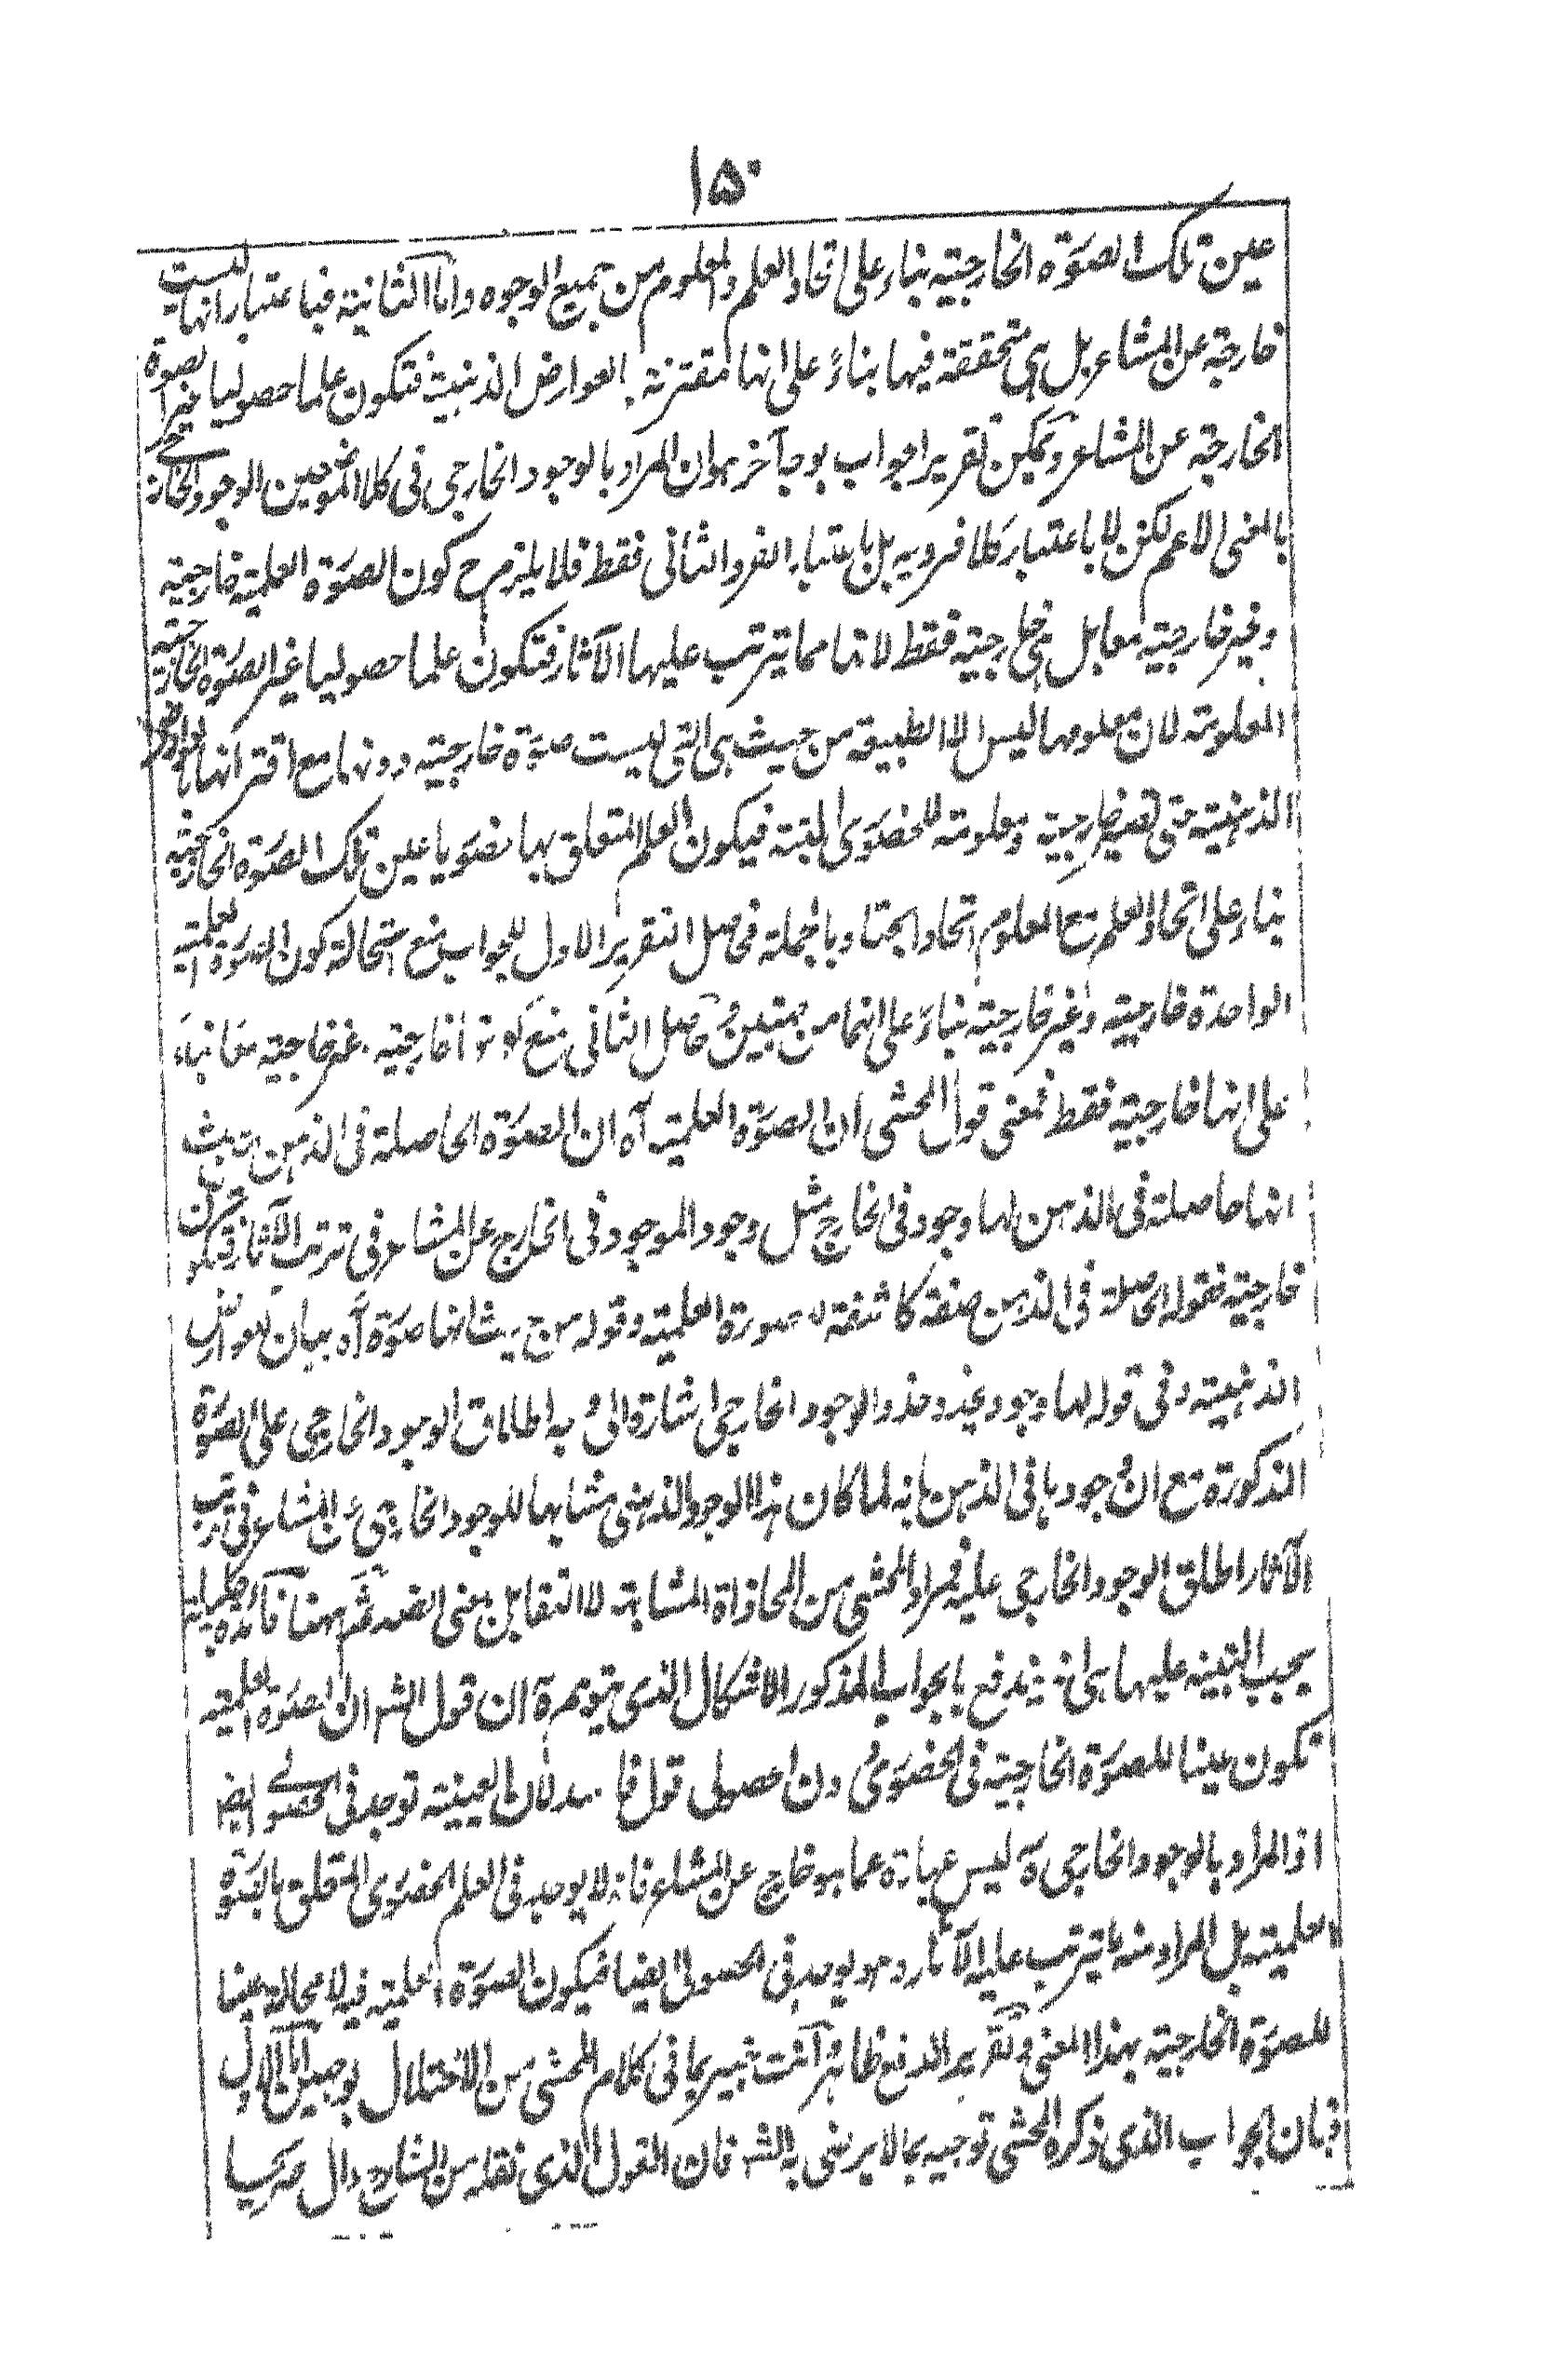 ١٥٠
عين تلك الصورة الخارجية بناء على اتحاد العلم والمعلوم من جميع الوجوه واما الثانية فباعتبار انها ليست
خارجة عن المشاعر بل هي متحققة فيها بناءً على انها مقترنة بالعوارض الذهنية فتكون علما حصوليا غير الصورة
الخارجة عن المشاعر ويمكن تقرير الجواب بوجه آخر هو ان المراد بالوجود الخارجي في كلا الموضعين الوجود الخارجي
بالمعنى الاعم لكن لا باعتبار كلا فرديه بل باعتبار الفرد الثاني فقط فلا يلزم ح كون الصورة العلمية خارجية
وغير خارجية معا بل خارجية فقط لانها مما يترتب عليها الآثار فتكون علما حصوليا غير الصورة الخارجية
المعلومة لان معلومها ليس الا الطبيعة من حيث هي التي ليست صورة خارجية دونها مع اقترانها بالعوارض
الذهنية حتى تصير خارجية ومعلومة للحضوري البتة فيكون العلم المتعلق بها حضوريا عين تلك الصورة الخارجية
بناء على اتحاد العلم مع المعلوم اتحادا بحتا وبالجملة فحاصل التقرير الاول للجواب منع استحالة كون الصورة العلمية
الواحدة خارجية وغير خارجية بناءً على انها من جهتين وحاصل الثاني منع كونها خارجية وغير خارجية معا بناء
على انها خارجية فقط فمعنى قول المحشي ان الصورة العلمية آه ان الصورة الحاصلة في الذهن من حيث
انها حاصلة في الذهن لها وجود في الخارج مثل وجود الموجود في الخارج عن المشاعر في ترتب الآثار فتكون
خارجية فقوله الحاصلة في الذهن صفة كاشفة للصورة العلمية وقوله من حيث انها صورة آه بيان للعوارض
الذهنية وفي قوله لها وجود يحذو حذو الوجود الخارجي اشارة الى وجه اطلاق الوجود الخارجي على الصورة
المذكورة مع ان وجودها في الذهن بانه لما كان هذا الوجود الذهني مشابها للوجود الخارجي عن المشاعر في ترتب
الآثار اطلق الوجود الخارجي عليه فمراد المحشي من المحاذاة المشابهة لا التقابل بمعنى الضد ثم ههنا فائدة جليلة
يجب التنبيه عليها هي انه يندفع بالجواب المذكور الاشكال الذي يتوهم من ان قول الشه ان الصورة العلمية
تكون عينا للصورة الخارجية في الحضوري دون الحصولي قول فاسد لان العينية توجد في الحصولي ايضا
اذ المراد بالوجود الخارجي ليس عبارة عما هو خارج عن المشاعر فانه لا يوجد في العلم الحضوري المتعلق بالصورة
العلمية بل المراد منه ما يترتب عليه الآثار وهو يوجد في الحصولي ايضا فيكون الصورة العلمية فيه لا محالة عينا
للصورة الخارجية بهذا المعنى وتقرير الدفع ظاهر وانت خبير بما في كلام المحشي من الاختلال بوجهين اما الاول
فبان الجواب الذي ذكره المحشي توجيه بما لا يرضى به الشه فان القول الذي نقله من الشارح دال صريحا